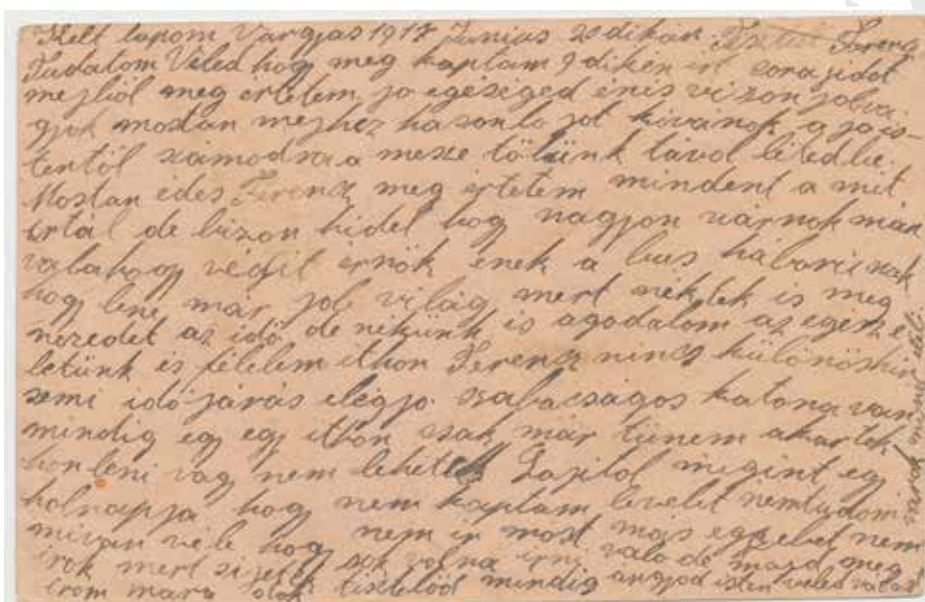 Kelt lapom Vargjas 1917 Junius 20 dikán Ferenc
Tudatom Veled hogy meg kaptam 9 diken irt sorajidot
mejböl meg ertetem jo egeséged énis vizon jolva
gjok mostan mejhez hasonlo jot kivanok a jo is-
tentöl számodra a mesze tölünk távol
Mostan édes Ferenc meg értetem mindent a mit
irtál de bizon hidel hogy nagjon várnok mán
valahogy végit érnök enek a bus háborúnak
hogy lene már job világ mert néktek is meg
nezedet az idö de nékünk is agodalom az egész é
letünk és félelem ithon Ferenc nincs különöshir
semi idö járás elégjo szabacságos katona van
mindig egy egy ithon csak már tünem akartok
hon leni vag nem lehetek Lajitol megint egy
holnapja hogy nem kaptam levelet nemtudom
mivan vele hogy nem ir most mas egjebet nem
irok mert sok volna irni valo de majd meg
irom mára tisztelöd mindig angjod isten veled